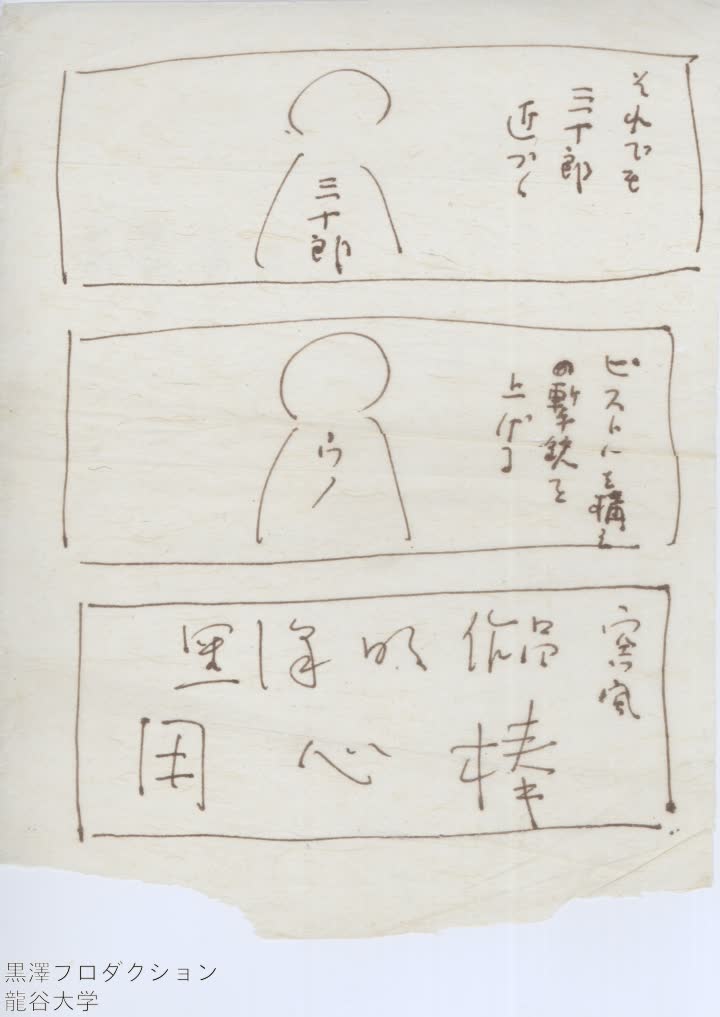 それでも
三十郎
近づく
三十郎
ピストルを構え
の撃鉄を
上げる
ウノ
突風
黒澤明作品
用心棒
黒澤フロダクション
龍谷大学